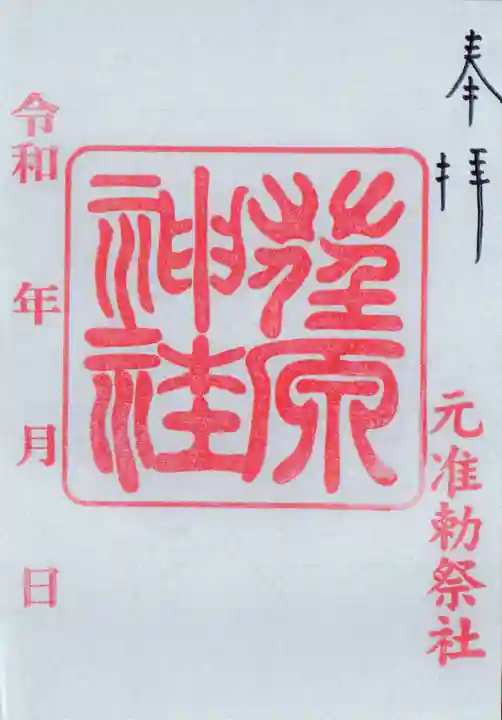 奉拝
元准勅祭社
荏原
神社
令和　年　月　日